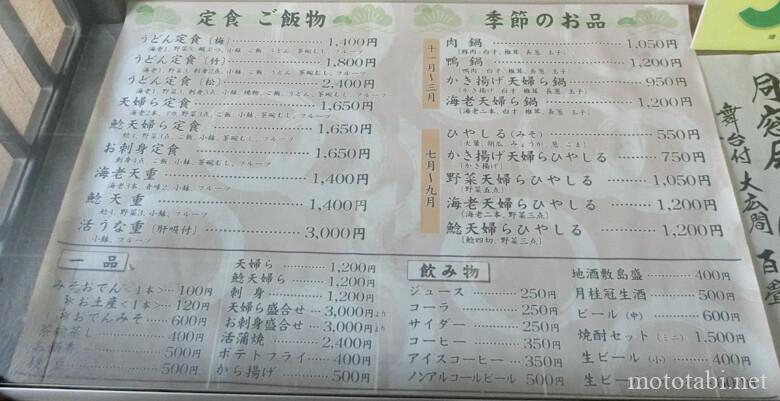 定食 ご飯物
うどん定食(梅) 1,400円
うどん定食(竹) 1,800円
うどん定食(松) 2,400円
天婦ら定食 1,650円
鯰天婦ら定食 1,650円
お刺身定食 1,650円
海老天重 1,400円
海老3本、青味2、小鉢、フルーツ
鯰天重 1,400円
鯰4、野菜3、小鉢、フルーツ
活うな重(肝吸付) 3,000円
小鉢、フルーツ
季節のお品
十一月〜三月
肉鍋 1,050円
鴨鍋 1,200円
かき揚げ天婦ら鍋 950円
海老天婦ら鍋 1,200円
七月〜九月
ひやしる(みそ) 550円
かき揚げ天婦らひやしる 750円
(かき揚げ)
野菜天婦らひやしる 1,050円
(野菜五点)
海老天婦らひやしる 1,200円
(海老二本、野菜三点)
鯰天婦らひやしる 1,200円
(鯰四切、野菜三点)
一品
みそおでん<1本> 100円
お土産<1本> 120円
おでんみそ 600円
蒸し 400円
500円
500円
天婦ら 1,200円
鯰天婦ら 1,200円
刺身 1,200円
天婦ら盛合せ 3,000円より
お刺身盛合せ 3,000円より
活蒲焼 2,400円
ポテトフライ 400円
から揚げ 500円
飲み物
ジュース 250円
コーラ 250円
サイダー 250円
コーヒー 350円
アイスコーヒー 350円
ノンアルコールビール 500円
地酒敷島盛 400円
月桂冠生酒 500円
ビール(中) 600円
焼酎セット(ミニ) 1,500円
生ビール(小) 400円
生ビー
舞台付 大広間
mototabi.net